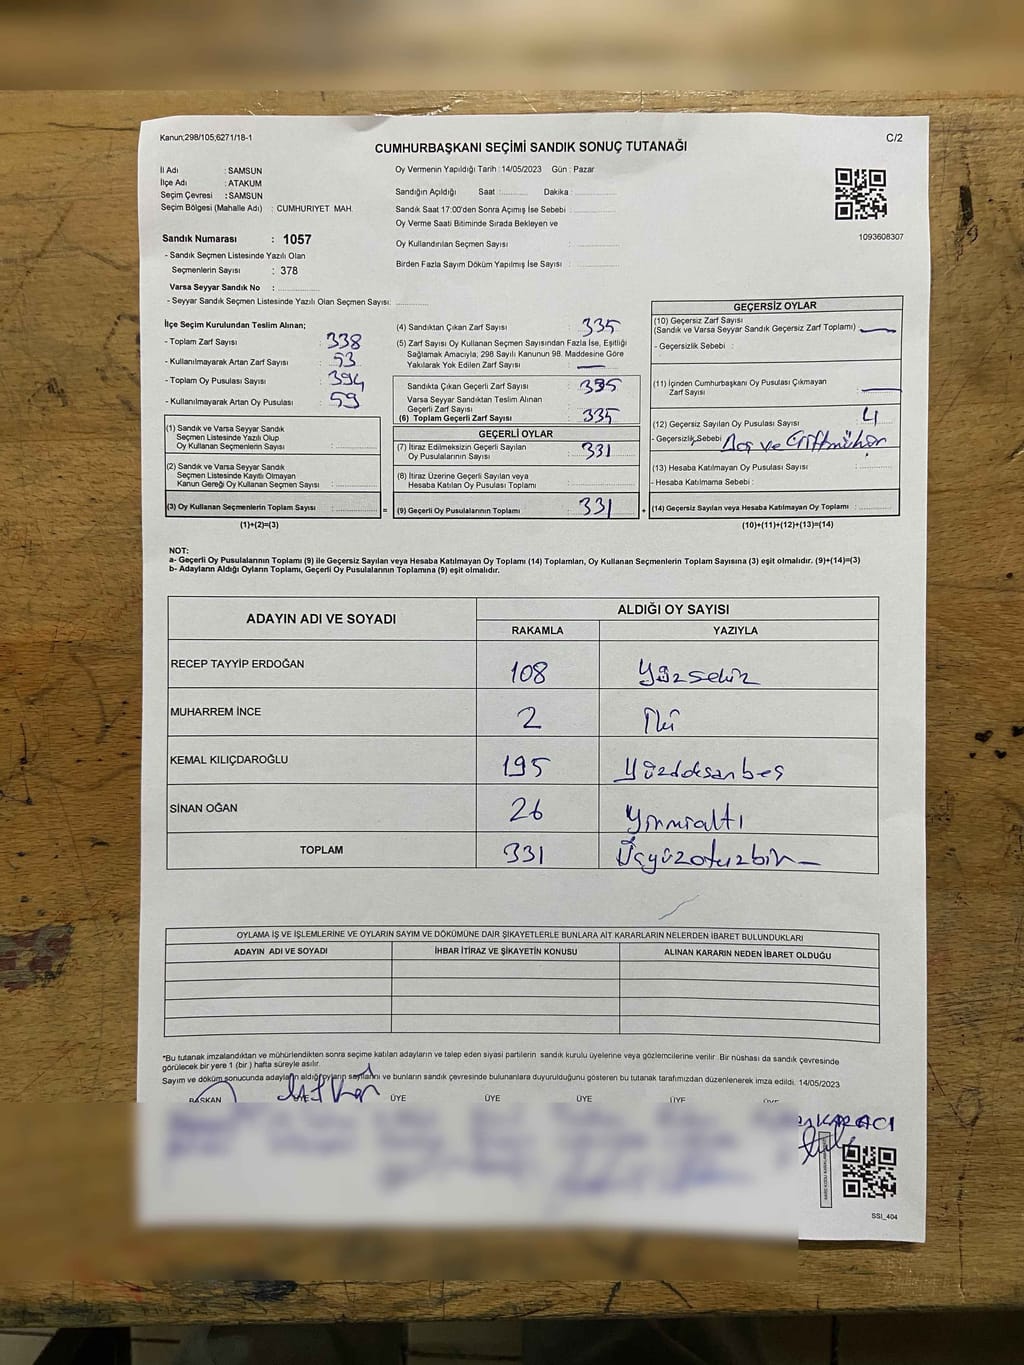 Kanun;298/105,6271/18-1
C/2
CUMHURBAŞKANI SEÇİMİ SANDIK SONUÇ TUTANAĞI
İl Adı : SAMSUN
İlçe Adı : ATAKUM
Seçim Çevresi : SAMSUN
Seçim Bölgesi (Mahalle Adı) : CUMHURIYET MAH.
Oy Vermenin Yapıldığı Tarih : 14/05/2023 Gün : Pazar
Sandığın Açıldığı Saat :............ Dakika :............
Sandık Saat 17:00'den Sonra Açımış İse Sebebi :............
Oy Verme Saati Bitiminde Sırada Bekleyen ve
Oy Kullandırılan Seçmen Sayısı :............
Birden Fazla Sayım Döküm Yapılmış İse Sayısı :............
1093608307
Sandık Numarası : 1057
- Sandık Seçmen Listesinde Yazılı Olan
Seçmenlerin Sayısı : 378
Varsa Seyyar Sandık No :............
- Seyyar Sandık Seçmen Listesinde Yazılı Olan Seçmen Sayısı:............
İlçe Seçim Kurulundan Teslim Alınan;
- Toplam Zarf Sayısı : 338
- Kullanılmayarak Artan Zarf Sayısı : 53
- Toplam Oy Pusulası Sayısı : 394
- Kullanılmayarak Artan Oy Pusulası : 59
(1) Sandık ve Varsa Seyyar Sandık
Seçmen Listesinde Yazılı Olup
Oy Kullanan Seçmenlerin Sayısı :............
(2) Sandık ve Varsa Seyyar Sandık
Seçmen Listesinde Kayıtlı Olmayan
Kanun Gereği Oy Kullanan Seçmen Sayısı :............
(3) Oy Kullanan Seçmenlerin Toplam Sayısı :............ =
(1)+(2)=(3)
(4) Sandıktan Çıkan Zarf Sayısı : 335
(5) Zarf Sayısı Oy Kullanan Seçmen Sayısından Fazla İse, Eşitliği
Sağlamak Amacıyla, 298 Sayılı Kanunun 98. Maddesine Göre
Yakılarak Yok Edilen Zarf Sayısı : —
Sandıkta Çıkan Geçerli Zarf Sayısı : 335
Varsa Seyyar Sandıktan Teslim Alınan
Geçerli Zarf Sayısı
(6) Toplam Geçerli Zarf Sayısı : 335
GEÇERLİ OYLAR
(7) İtiraz Edilmeksizin Geçerli Sayılan
Oy Pusulalarının Sayısı : 331
(8) İtiraz Üzerine Geçerli Sayılan veya
Hesaba Katılan Oy Pusulası Toplamı :............
(9) Geçerli Oy Pusulalarının Toplamı : 331 +
GEÇERSİZ OYLAR
(10) Geçersiz Zarf Sayısı
(Sandık ve Varsa Seyyar Sandık Geçersiz Zarf Toplamı) : —
- Geçersizlik Sebebi :
(11) İçinden Cumhurbaşkanı Oy Pusulası Çıkmayan
Zarf Sayısı : —
(12) Geçersiz Sayılan Oy Pusulası Sayısı : 4
- Geçersizlik Sebebi : Boş ve Çiftmühür
(13) Hesaba Katılmayan Oy Pusulası Sayısı :............
- Hesaba Katılmama Sebebi :
(14) Geçersiz Sayılan veya Hesaba Katılmayan Oy Toplamı :............
(10)+(11)+(12)+(13)=(14)
NOT:
a- Geçerli Oy Pusulalarının Toplamı (9) ile Geçersiz Sayılan veya Hesaba Katılmayan Oy Toplamı (14) Toplamları, Oy Kullanan Seçmenlerin Toplam Sayısına (3) eşit olmalıdır. (9)+(14)=(3)
b- Adayların Aldığı Oyların Toplamı, Geçerli Oy Pusulalarının Toplamına (9) eşit olmalıdır.
ADAYIN ADI VE SOYADI
ALDIĞI OY SAYISI
RAKAMLA YAZIYLA
RECEP TAYYİP ERDOĞAN 108 Yüzsekiz
MUHARREM İNCE 2 İki
KEMAL KILIÇDAROĞLU 195 Yüzdoksanbeş
SİNAN OĞAN 26 Yirmialtı
TOPLAM 331 Üçyüzotuzbir
OYLAMA İŞ VE İŞLEMLERİNE VE OYLARIN SAYIM VE DÖKÜMÜNE DAİR ŞİKAYETLERLE BUNLARA AİT KARARLARIN NELERDEN İBARET BULUNDUKLARI
ADAYIN ADI VE SOYADI İHBAR İTİRAZ VE ŞİKAYETİN KONUSU ALINAN KARARIN NEDEN İBARET OLDUĞU
*Bu tutanak imzalandıktan ve mühürlendikten sonra seçime katılan adayların ve talep eden siyasi partilerin sandık kurulu üyelerine veya gözlemcilerine verilir. Bir nüshası da sandık çevresinde
görülecek bir yere 1 (bir ) hafta süreyle asılır.
Sayım ve döküm sonucunda adayların aldığı oyların sayılarını ve bunların sandık çevresinde bulunanlara duyurulduğunu gösteren bu tutanak tarafımızdan düzenlenerek imza edildi. 14/05/2023
BAŞKAN ÜYE ÜYE ÜYE ÜYE ÜYE ÜYE
KARACI
SSI_404